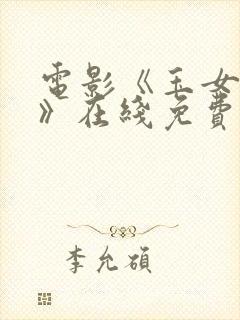 電影《玉女
》在綫免費
李允碩